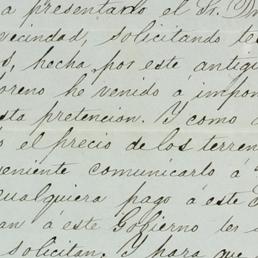 a presentado el Sr. D
vecindad, solicitando
hecha por este antig
oreno he venido á impon
sta pretencion. Y como
el precio de los terren
veniente comunicarlo á
ualquiera pago á este
an á este Gobierno
solicitan. Y para que